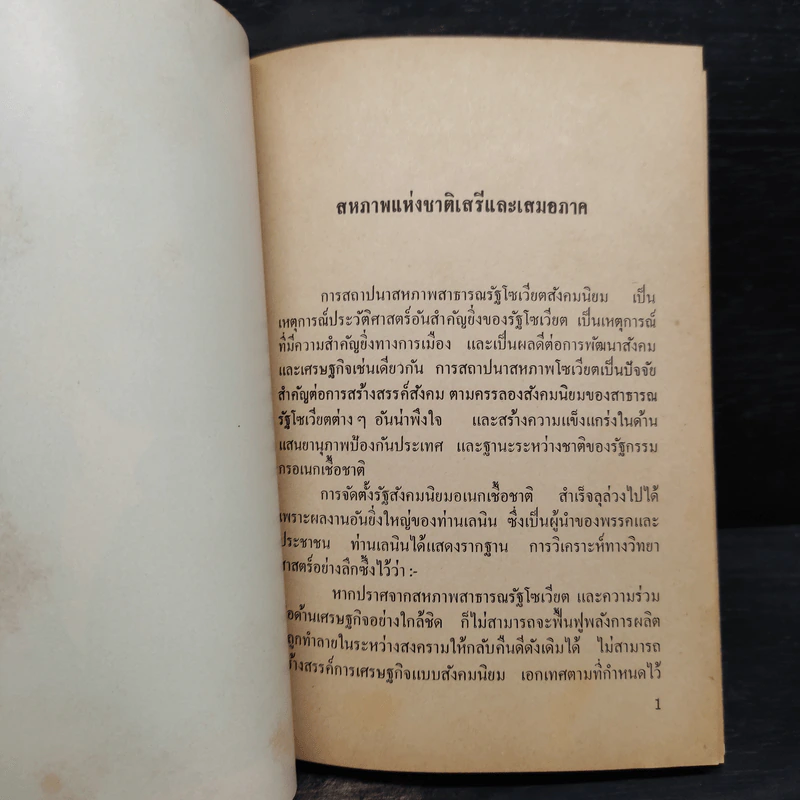 สหภาพแห่งชาติเสรีและเสมอภาค
การสถาปนาสหภาพสาธารณรัฐโซเวียตสังคมนิยม เป็น
เหตุการณ์ประวัติศาสตร์อันสำคัญยิ่งของรัฐโซเวียต เป็นเหตุการณ์
ที่มีความสำคัญยิ่งทางการเมือง และเป็นผลดีต่อการพัฒนาสังคม
และเศรษฐกิจเช่นเดียวกัน การสถาปนาสหภาพโซเวียตเป็นปัจจัย
สำคัญต่อการสร้างสรรค์สังคม ตามครรลองสังคมนิยมของสาธารณ
รัฐโซเวียตต่าง ๆ อันน่าพึงใจ และสร้างความแข็งแกร่งในด้าน
แสนยานุภาพป้องกันประเทศ และฐานะระหว่างชาติของรัฐกรรม
กรอเนกเชื้อชาติ
การจัดตั้งรัฐสังคมนิยมอเนกเชื้อชาติ สำเร็จลุล่วงไปได้
เพราะผลงานอันยิ่งใหญ่ของท่านเลนิน ซึ่งเป็นผู้นำของพรรคและ
ประชาชน ท่านเลนินได้แสดงรากฐาน การวิเคราะห์ทางวิทยา
ศาสตร์อย่างลึกซึ้งไว้ว่า :-
หากปราศจากสหภาพสาธารณรัฐโซเวียต และความร่วม
อด้านเศรษฐกิจอย่างใกล้ชิด ก็ไม่สามารถจะฟื้นฟูพลังการผลิต
ถูกทำลายในระหว่างสงครามให้กลับคืนดีดังเดิมได้ ไม่สามารถ
ร้างสรรค์การเศรษฐกิจแบบสังคมนิยม เอกเทศตามที่กำหนดไว้
1